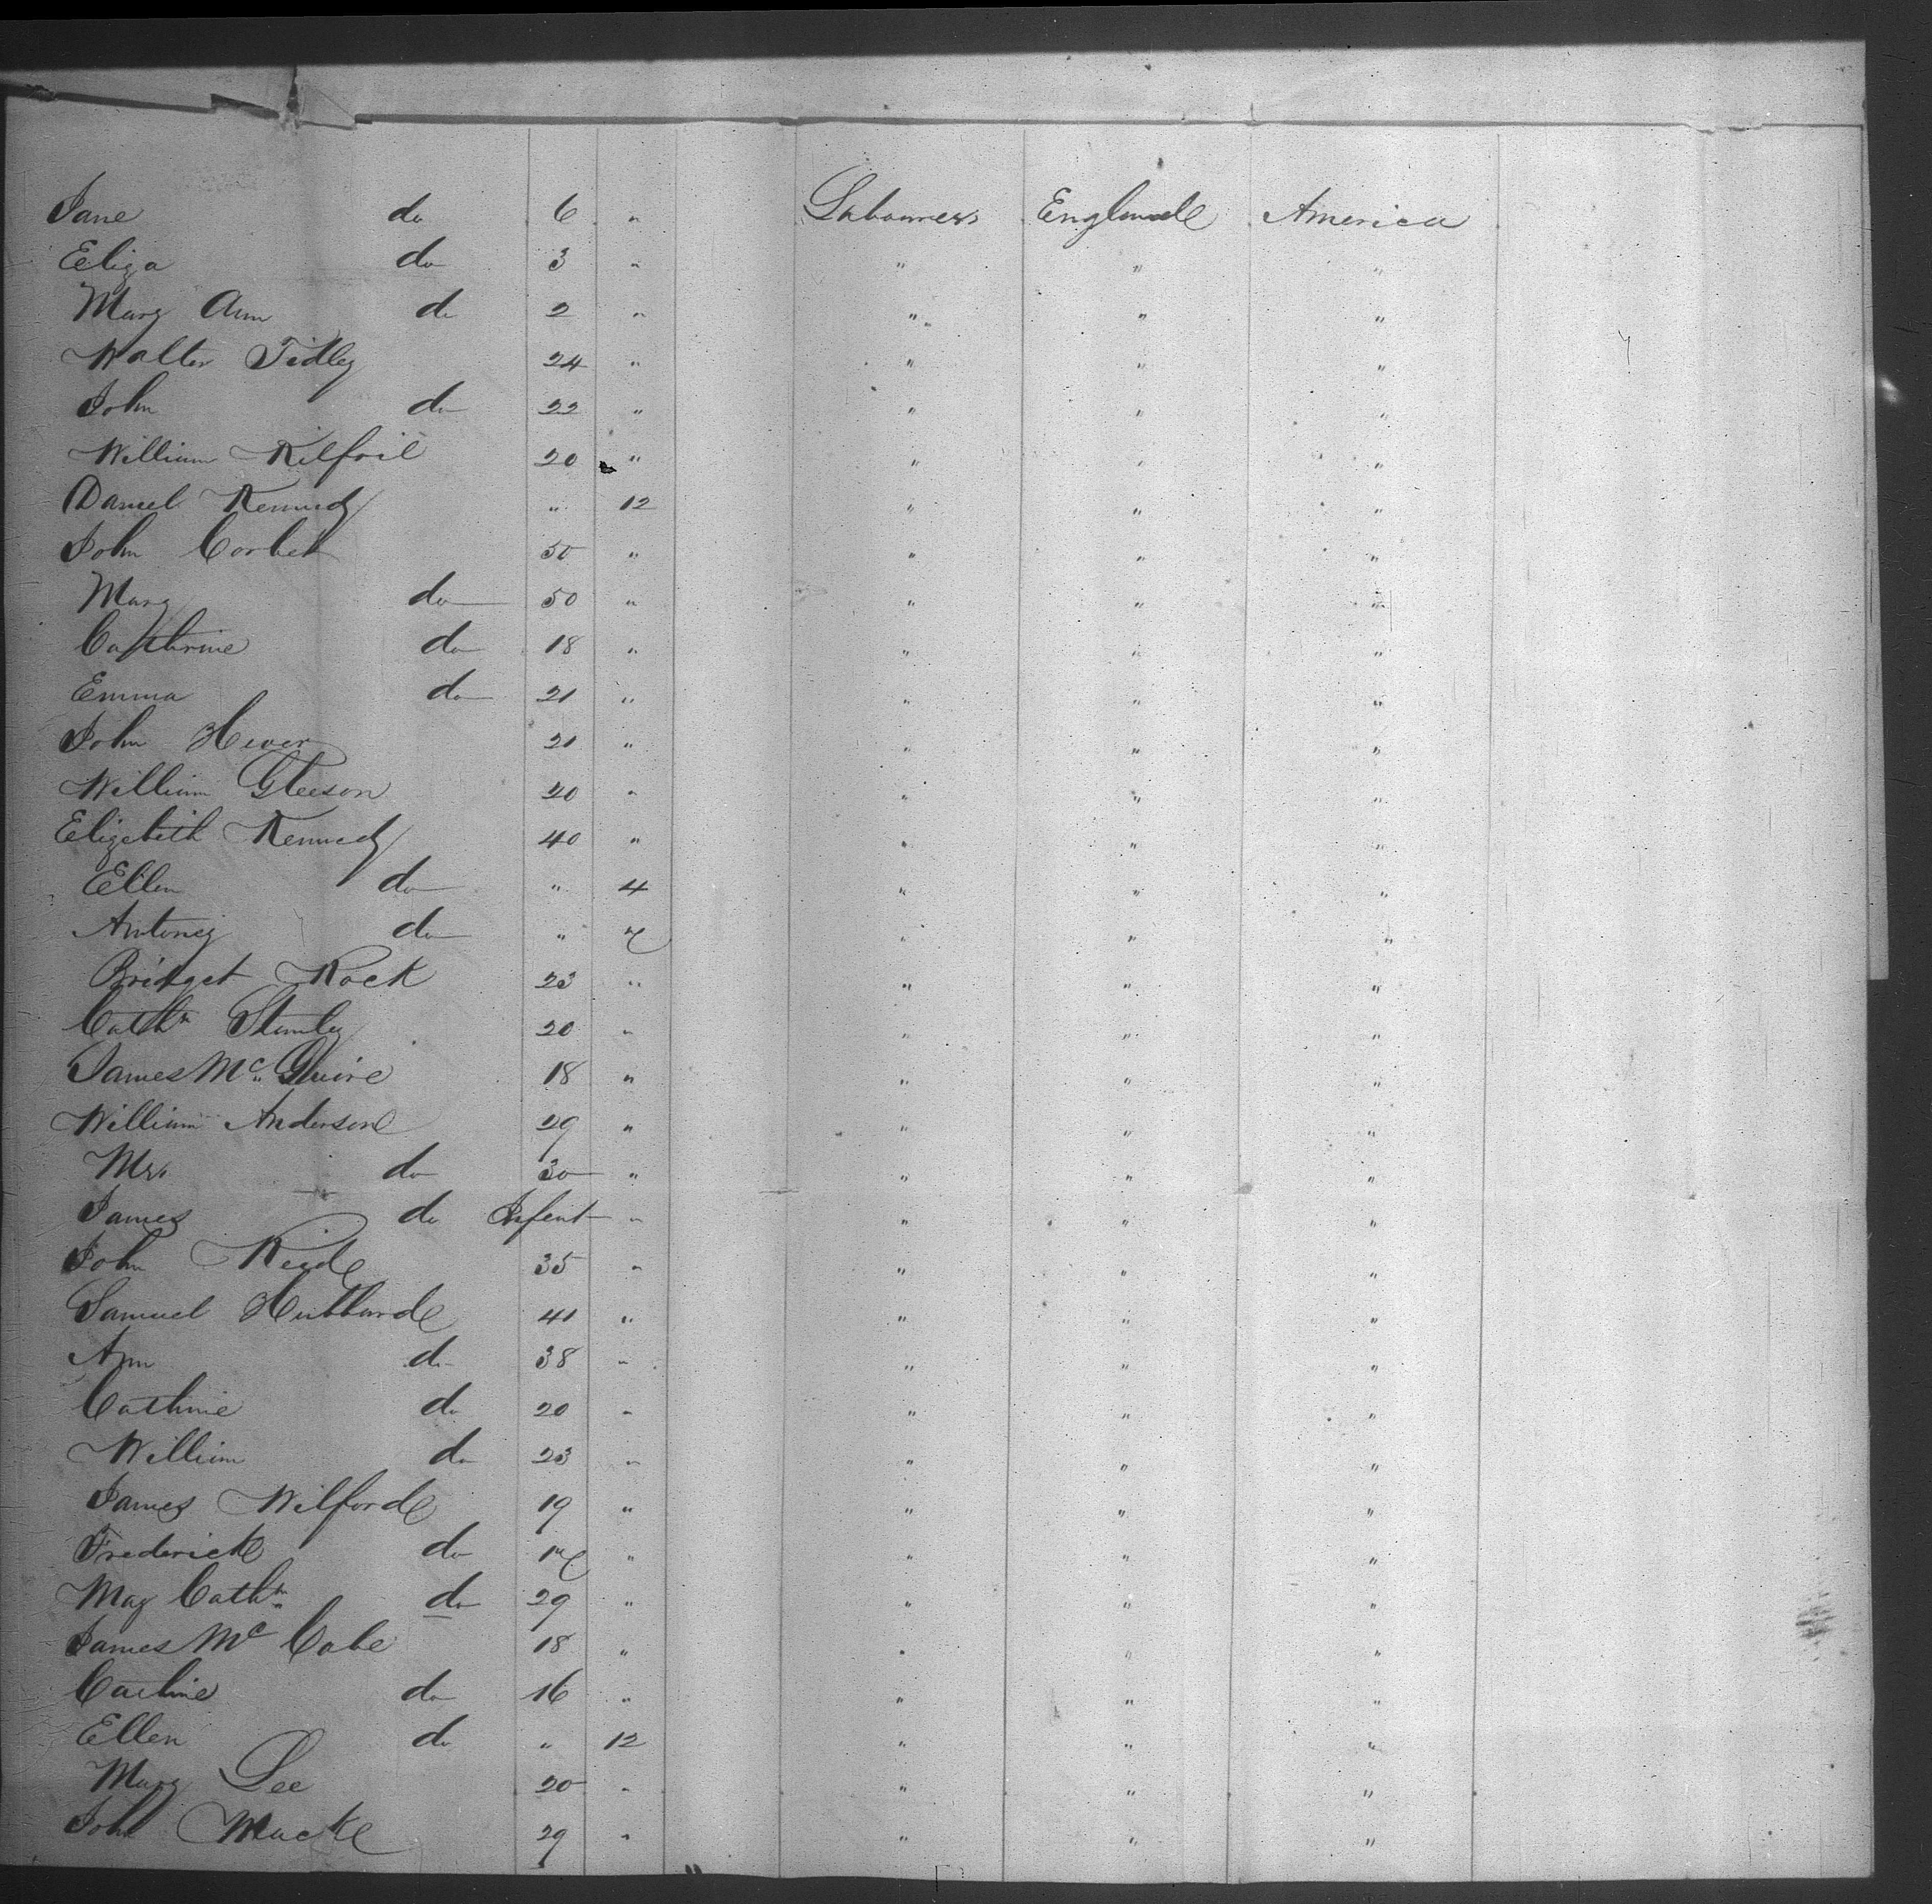 Jane do 6 " Labourers England America
Eliza do 3 " " " "
Mary Ann do 2 " " " "
Walter Tidley 24 " " " "
John do 22 " " " "
William Kilfoil 20 " " " "
Daniel Kennedy " 12 " " "
John Corbet 50 " " " "
Mary do 50 " " " "
Cathrine do 18 " " " "
Emma do 21 " " " "
John Hever 21 " " " "
William Gleeson 20 " " " "
Elizebith Kennedy 40 " " " "
Ellen do " 4 " " "
Antoney do " " " "
Bridget Rock 23 " " " "
Cathn Stanley 20 " " " "
James Mc Guire 18 " " " "
William Anderson 29 " " " "
Mrs do 30 " " " "
James do Infent " " " "
John Reid 35 " " " "
Samuel Hubbard 41 " " " "
Ann do 38 " " " "
Cathrine do 20 " " " "
William do 23 " " " "
James Wilford 19 " " " "
Frederick do " " " "
May Cathn do 29 " " " "
James Mc Cabe 18 " " " "
Carline do 16 " " " "
Ellen do " 12 " " "
Mary Lee 20 " " " "
John Macke 29 " " " "